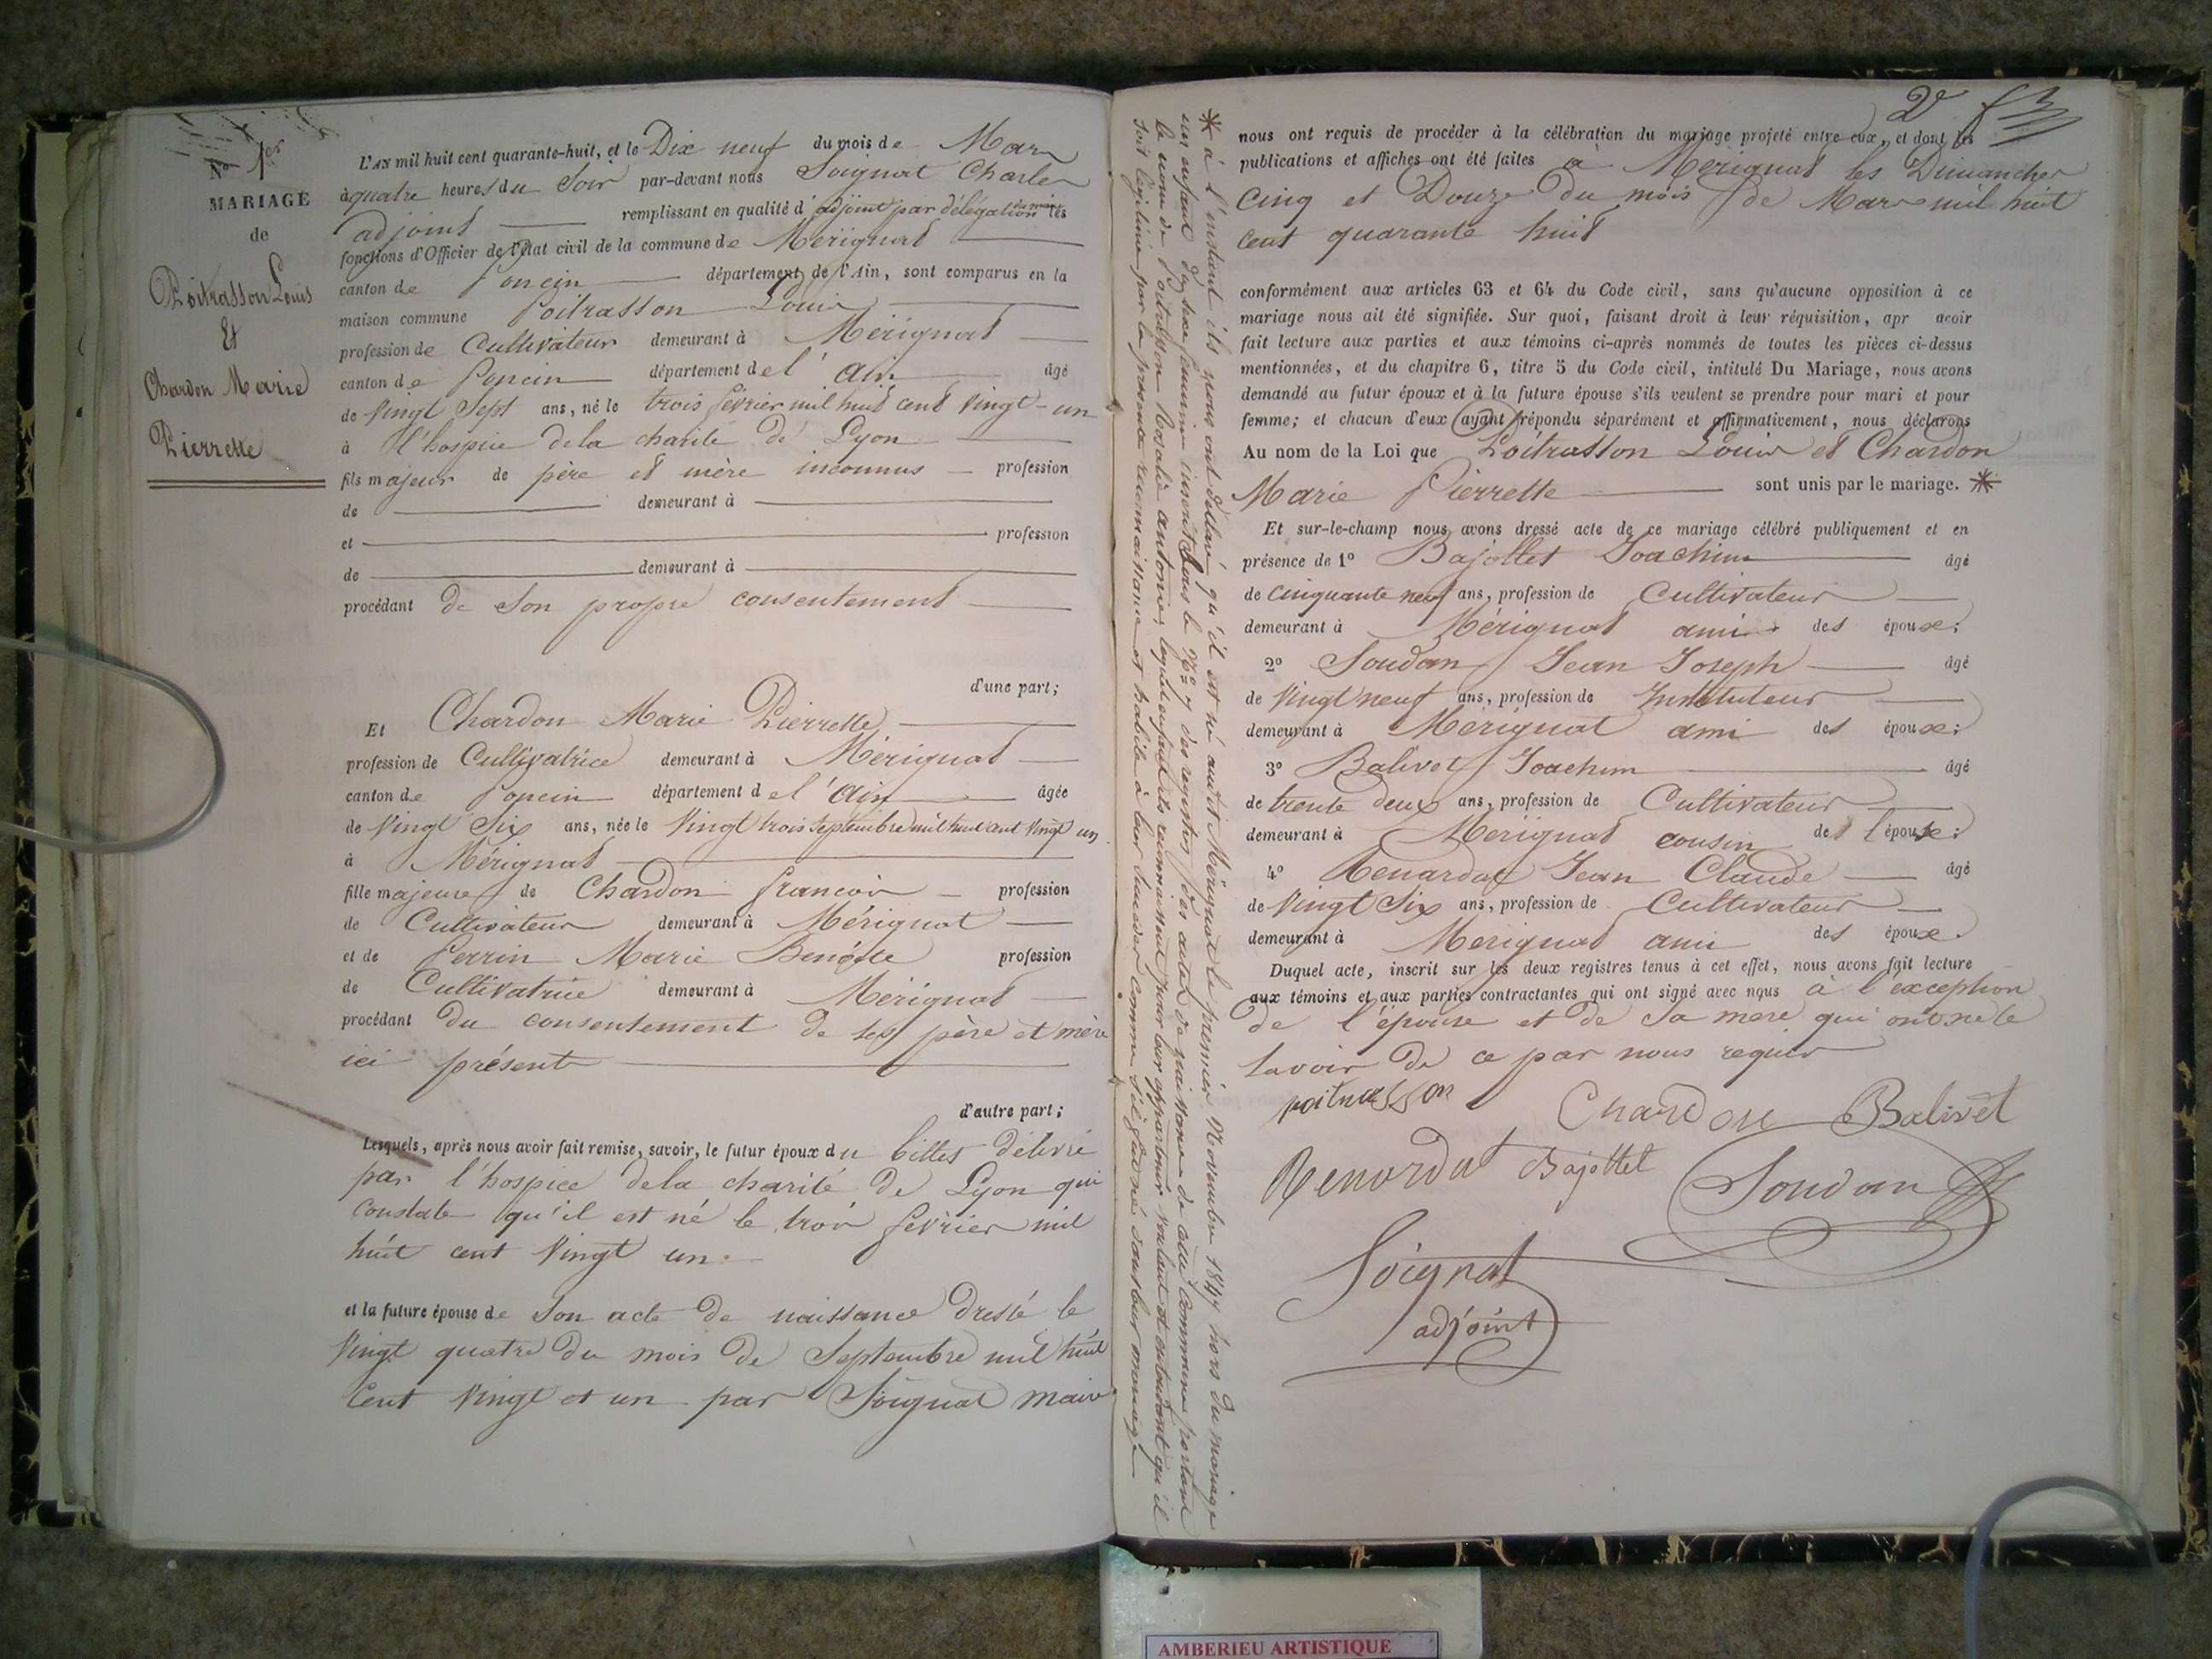 No 1er
MARIAGE
de
Poitrasson Louis
Et
Chardon Marie
Pierrette
L'AN mil huit cent quarante-huit, et le Dix neuf du mois de Mars
à quatre heures du Soir par-devant nous Soignat Charles
adjoint remplissant en qualité d'adjoint par délégation du maire les
fonctions d'Officier de l'état civil de la commune de Mérignat
canton de Poncin département de l'Ain, sont comparus en la
maison commune Poitrasson Louis
profession de Cultivateur demeurant à Mérignat
canton de Poncin département de l'Ain âgé
de Vingt Sept ans, né le trois février mil huit cent Vingt-un
à l'hospice de la charité de Lyon
fils majeur de père et mère inconnus profession
de demeurant à
et profession
de demeurant à
procédant de Son propre consentement
d'une part;
Et Chardon Marie Pierrette
profession de Cultivatrice demeurant à Mérignat
canton de Poncin département de l'Ain âgée
de Vingt Six ans, née le Vingt trois Septembre mil huit cent Vingt un
à Mérignat
fille majeure de Chardon francois profession
de Cultivateur demeurant à Mérignat
et de Perrin Marie Benoîte profession
de Cultivatrice demeurant à Mérignat
procédant du consentement de ses père et mère
ici présent
d'autre part;
Lesquels, après nous avoir fait remise, savoir, le futur époux du billet délivré
par l'hospice dela charité de Lyon qui
constate qu'il est né le trois février mil
huit cent Vingt un
et la future épouse de Son acte de naissance dressé le
Vingt quatre du mois de Septembre mil huit
Cent Vingt et un par Soignat maire
* à l'instant ils nous ont déclaré qu'il est né audit Mérignat le premier Novembre 1847 hors du mariage
un enfant du sexe féminin inscrit sous le No 7 des registres des actes de naissance de cette Commune portant
le nom de Poitrasson Rosalie antoinie, lequel enfant ils reconnaissent pour leur appartenir voulant et entendant qu'il
soit légitimé par la présente reconnaissance et habile à leur succéder comme s'il fut né dans leur mariage
2e
nous ont requis de procéder à la célébration du mariage projeté entre eux, et dont les
publications et affiches ont été faites à Mérignat les Dimanches
Cinq et Douze du mois de Mars mil huit
cent quarante huit
conformément aux articles 63 et 64 du Code civil, sans qu'aucune opposition à ce
mariage nous ait été signifiée. Sur quoi, faisant droit à leur réquisition, apr avoir
fait lecture aux parties et aux témoins ci-après nommés de toutes les pièces ci-dessus
mentionnées, et du chapitre 6, titre 5 du Code civil, intitulé Du Mariage, nous avons
demandé au futur époux et à la future épouse s'ils veulent se prendre pour mari et pour
femme; et chacun d'eux ayant répondu séparément et affirmativement, nous déclarons
Au nom de la Loi que Poitrasson Louis et Chardon
Marie Pierrette sont unis par le mariage. *
Et sur-le-champ nous avons dressé acte de ce mariage célébré publiquement et en
présence de 1o Bajollet Joachim âgé
de cinquante neuf ans, profession de Cultivateur
demeurant à Mérignat ami des époux;
2o Soudan Jean Joseph âgé
de Vingt neuf ans, profession de Instituteur
demeurant à Mérignat ami des époux;
3o Balivet Joachim âgé
de trente deux ans, profession de Cultivateur
demeurant à Mérignat cousin de l'épouse;
4o Renardat Jean Claude âgé
de Vingt Six ans, profession de Cultivateur
demeurant à Mérignat ami des époux.
Duquel acte, inscrit sur les deux registres tenus à cet effet, nous avons fait lecture
aux témoins et aux parties contractantes qui ont signé avec nous à l'exception
de l'épouse et de Sa mere qui ont ne le
Savoir de ce par nous requis
poitrasson Chardon Balivet
Renardat Bajollet Soudan
Soignat
adjoint
AMBERIEU ARTISTIQUE